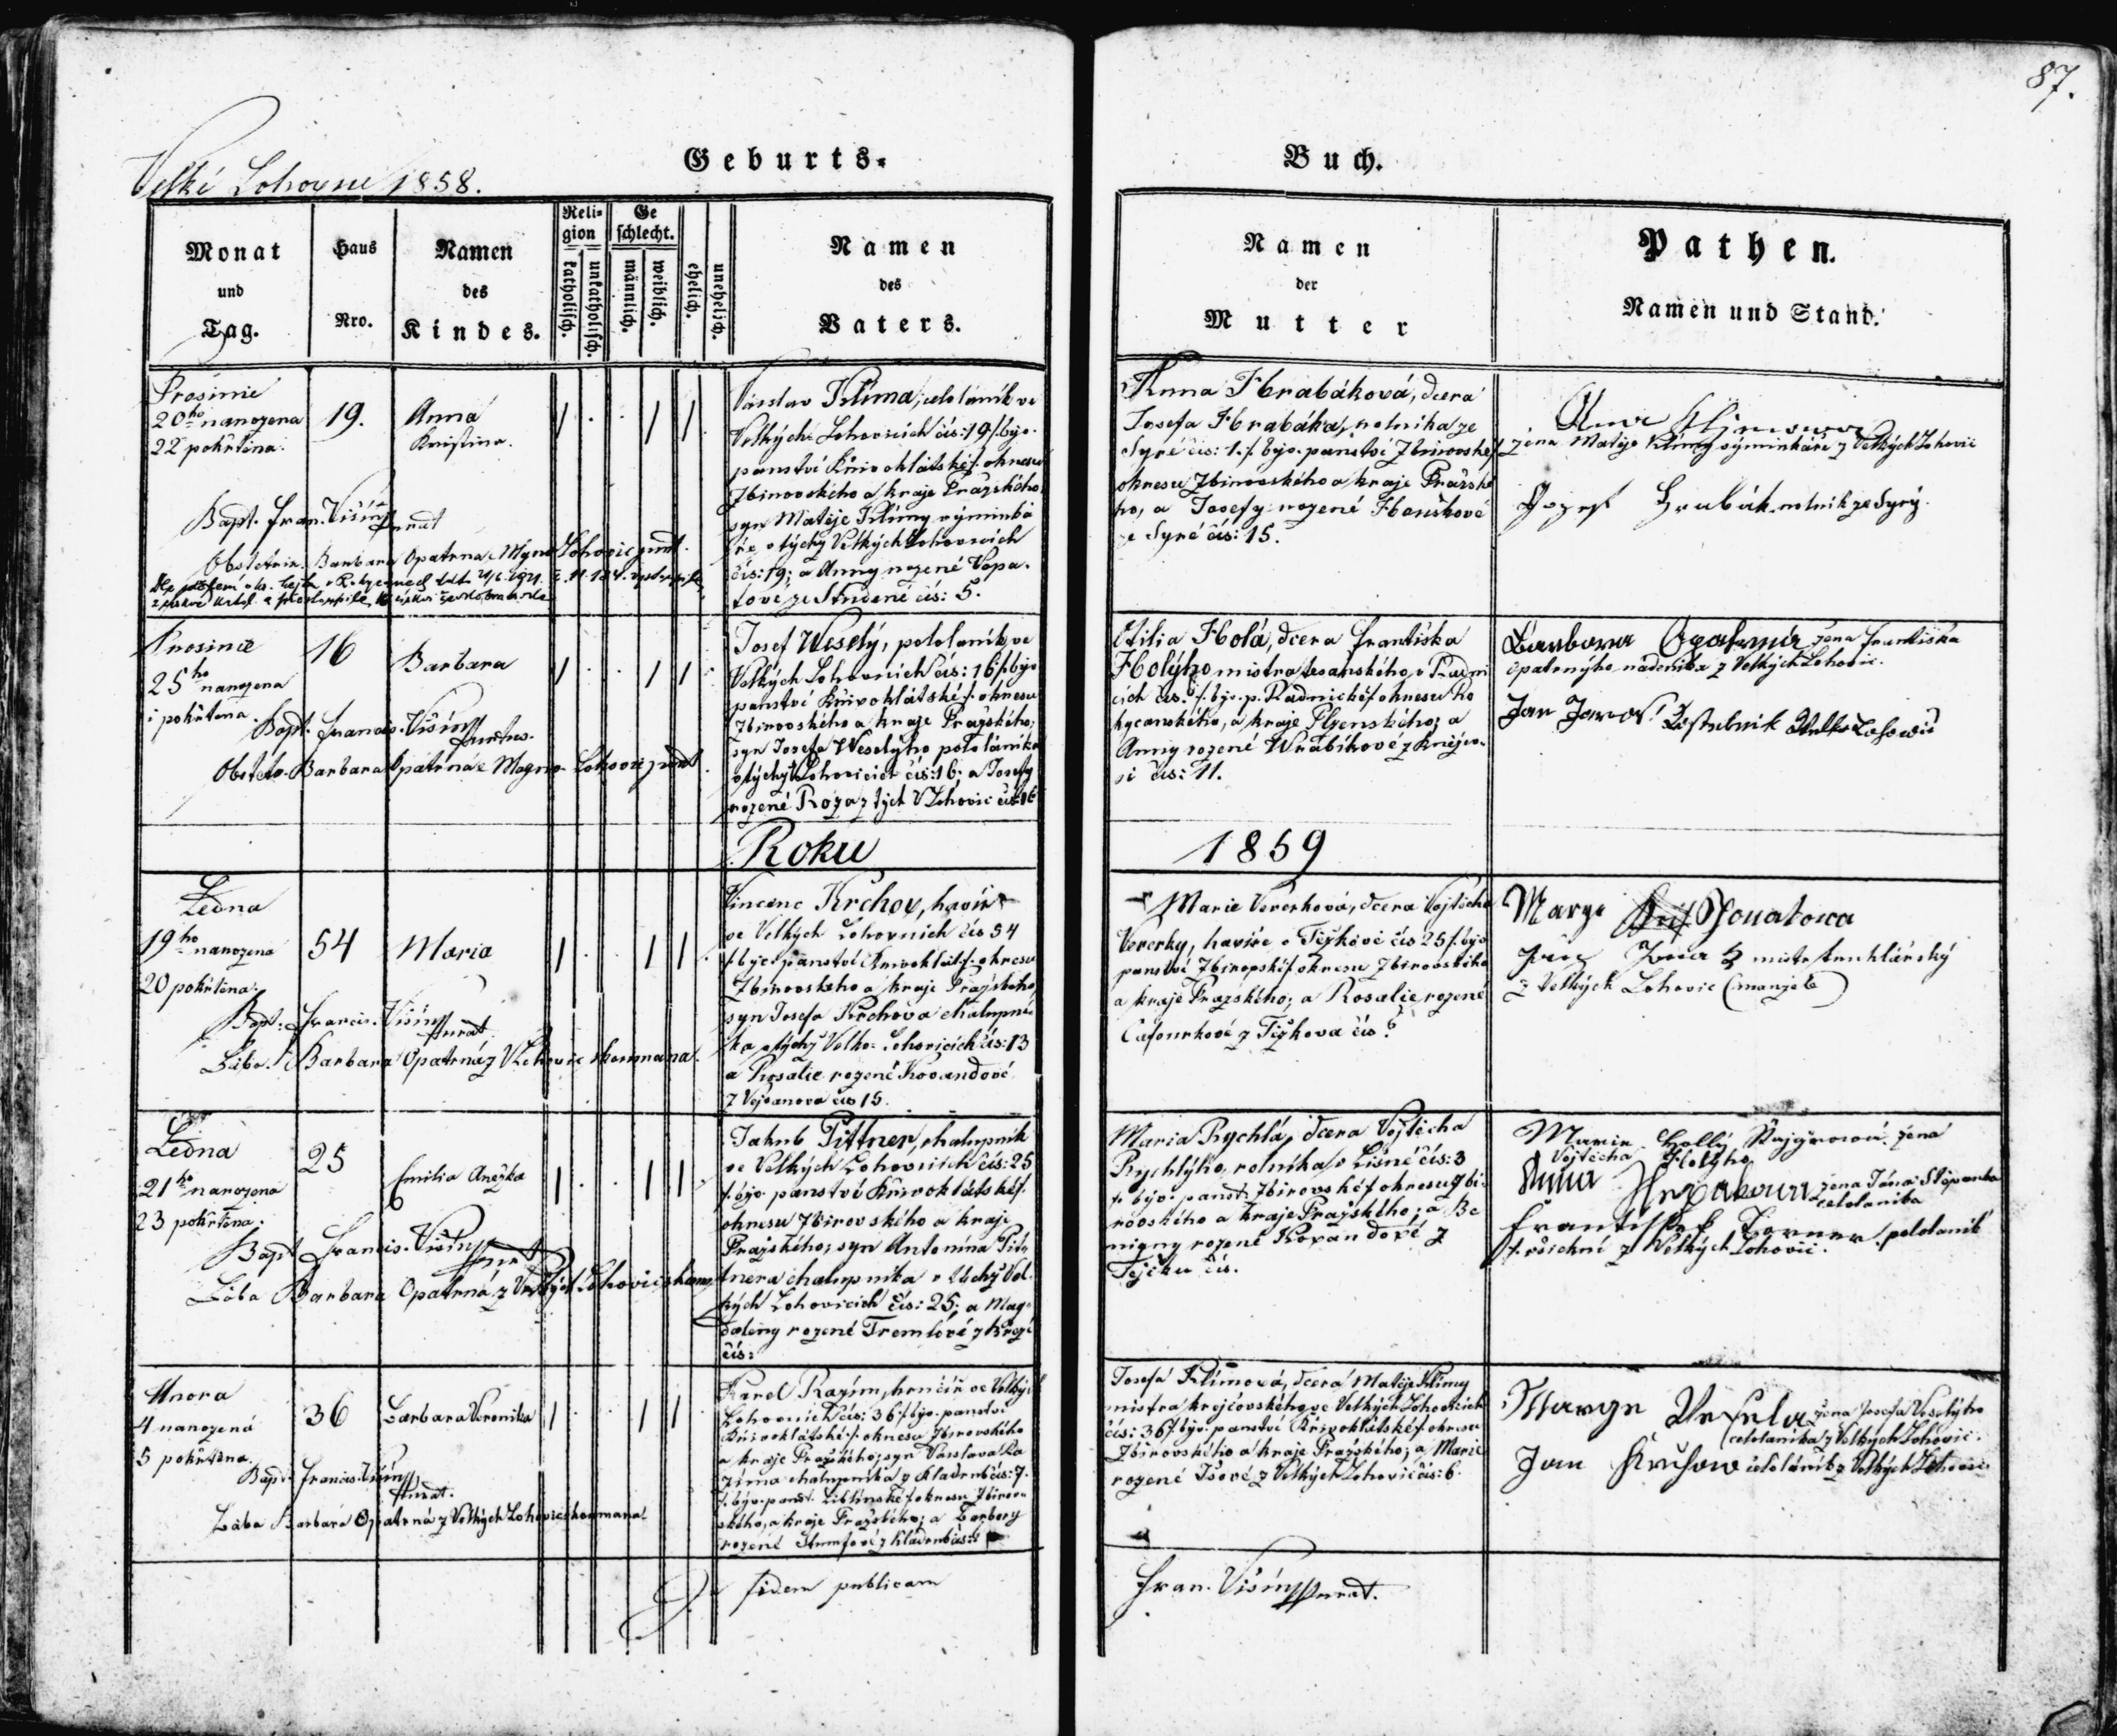 87.
Velké Lohovice 1858.
Geburts-
Buch.
Monat
und
Tag.
Haus
Nro.
Namen
des
Kindes.
Reli-
gion
katholisch.
unkatholisch.
Ge
schlecht.
männlich.
weiblich.
ehelich.
unehelich.
Namen
des
Vaters.
Namen
der
Mutter
Pathen.
Namen und Stand.
Prosince
20ho narozena
22 pokřtěna.
19.
Anna
Kristina.
Bapt. Fran. Višín
Obstetrix. Barbara Opatrna e Magno Lohovic
Václav Klíma, celoláník ve
Velkých Lohovicích čís: 19 f. býv.
panství Křivoklátské f. okresu
Zbirovského a kraje Pražského,
syn Matěje Klímy výminká
ře v týchž Velkých Lohovicích
čís: 19; a Anny rozené Vopa-
tové ze Studené čís: 5.
Anna Hrabáková, dcera
Josefa Hrabáka, rolníka ze
Syré čís: 1. f. býv. panství Zbirovské f.
okresu Zbirovského a kraje Pražské
ho, a Josefy rozené Hanškové
ze Syré čís: 15.
Anna Klimowa
žena Matěje Klímy výminkáře z Velkých Lohovic
Jozef Hrabák rolník ze Syrý.
Prosince
25ho narozena
i pokřtěna.
16
Barbara
Bapt. Francis. Višín
Obstetr. Barbara Opatrná e Magno Lohovic
Josef Weselý, pololaník ve
Velkých Lohovicích čís: 16 f. býv
panství Křivoklátské f. okresu
Zbirovského a kraje Pražského;
syn Josefa Weselýho pololáníka
v týchž Lohovicích čís: 16; a Josefy
rozené Roza z týchž V Lohovic čís: 16
Otilia Holá, dcera Františka
Holýho mistra tesařského, v Radni
cích čís. ? f. býv. p. Radnické f. okresu Ro
kycanského, a kraje Plzenského; a
Anny rozené Wrabíkové z Kněžo-
si čís: 11.
Barbora Opatrná žena Františka
Opatrnýho nádeníka z Velkých Lohovic.
Jan Jaroš
Roku
1859
Ledna
19ho narozena
20 pokřtěna.
54
Maria
Bapt. Francis. Višín
Bába. Barbara Opatrná z V Lohovic zkoumaná.
Vincenc Krchov, havíř
ve Velkých Lohovicích čís 54
f. býv. panství Křivoklát. f. okresu
Zbirovského a kraje Pražského
syn Josefa Krchova chalupní
ka v týchž Velko-Lohovicích čís: 13
a Rosalie rozené Kovandové
z Vejvanova čís 15.
Marie Vererková, dcera Vojtěcha
Vererky, havíře v Těškově čís 25 f. býv
panství Zbirovské f. okresu Zbirovského
a kraje Pražského; a Rosalie rozené
Cafourkové z Těškova čís ?
Marye Donatowa
mistr truhlářský
z Velkých Lohovic (manželé)
Ledna
21ho narozena
23 pokřtěna.
25
Emilia Anežka
Bapt. Francis. Višín
Bába Barbara Opatrná z Velkých Lohovic zkoum
Jakub Pittner, chalupník
ve Velkých Lohovicích čís: 25
f. býv. panství Křivoklátské f.
okresu Zbirovského a kraje
Pražského; syn Antonína Pit-
tnera chalupníka v těchž Vel-
kých Lohovicích čís: 25; a Mag-
daleny rozené Tremlové z
čís:
Maria Rychlá, dcera Vojtěcha
Rychlýho, rolníka v Lišné čís: 3
f. býv. panst. Zbirovské f. okresu Zbi-
rovského a kraje Pražského; a Be
nigny rozené Kovandové z
Tejčku čís.
Marie Hollý žena
Vojtěcha Holýho
Anna žena Jána Štěpánka
celoláníka
František pololaník
f. všichni z Velkých Lohovic.
Února
4 narozená
5 pokřtěna.
36
Barbara Veronika
Bapt. Francis. Višín
Bába Barbara Opatrná z Velkých Lohovic zkoumaná
Karel Razím, hrnčíř ve Velkých
Lohovicích čís: 36 f. býv. panství
Křivoklátské f. okresu Zbirovského
a kraje Pražského, syn Václava Ra
zíma chalupníka z Kladrub čís: 7.
f. býv. panst. Liblínské f. okresu Zbirov-
ského, a kraje Pražského; a Barbory
rozené Štumfové z Kladrub čís:
Josefa Klímová, dcera Matěje Klímy
mistra krejčovského ve Velkých Lohovicích
čís: 36 f. býv. panství Křivoklátské f. okresu
Zbirovského a kraje Pražského; a Marie
rozené Tůové z Velkých Lohovic čís: 6.
Marye Vesela žena Josefa Veselýho
celoláníka z Velkých Lohovic.
Jan Krchow celoláník z Velkých Lohovic
fidem publicam
Fran. Višín